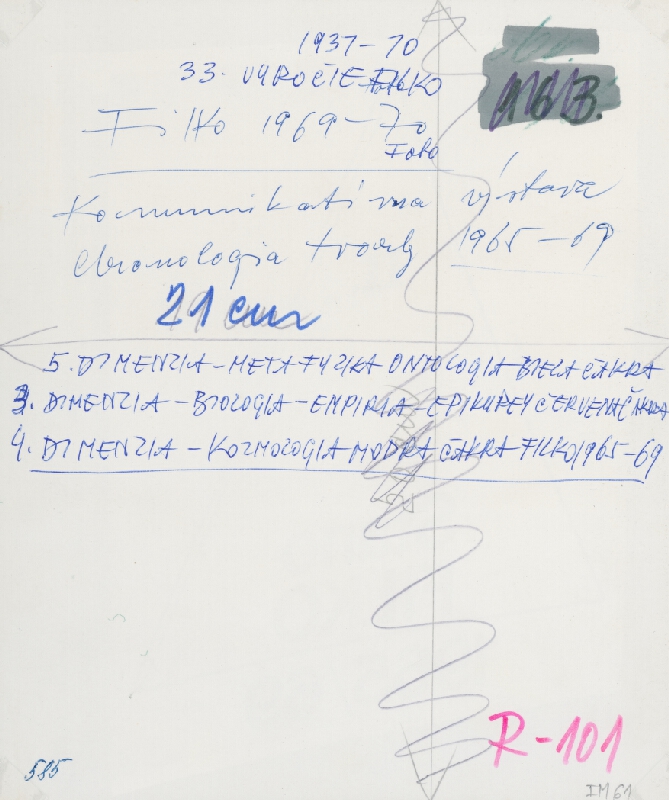 1937-70
33. VÝROČIE FILKO
Filko 1969-70
FOTO
Komunikatívna výstava
Chronologia tvorby 1965-69
21 cm
5. DIMENZIA-METAFYZIKA ONTOLOGIA BIELA ČAKRA
3. DIMENZIA-BIOLOGIA-EMPIRIA, EPIKUREY ČERVENÁ ČAKRA
4. DIMENZIA-KOZMOLOGIA MODRÁ ČAKRA FILKO 1965-69
R-101
585
IM 61